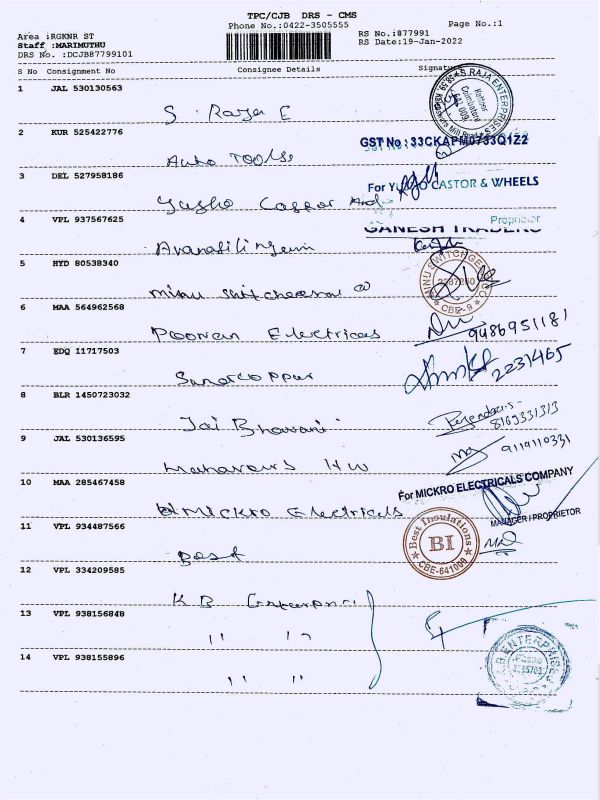 TPC/CJB DRS - CMS
Phone No.:0422-3505555
Page No.:1
Area :RGKNR ST
RS No.:877991
Staff :MARIMUTHU
RS Date:19-Jan-2022
DRS No. :DCJB87799101
S No Consignment No Consignee Details Signature
1 JAL 530130563
S. Raja E
S.RAJA ENTERPRISES
2 KUR 525422776
GST No : 33CKAPM0733Q1Z2
Auto Tools
3 DEL 527958186
CASTOR & WHEELS
4 VPL 937567625
Proprietor
GANESH TRADERS
5 HYD 80538340
6 MAA 564962568
CBE-9
Poonan Electricals
9486951181
7 EDQ 11717503
2231465
8 BLR 1450723032
Jai Bhavani
8169331313
9 JAL 530136595
9119110331
H W
10 MAA 285467458
For MICKRO ELECTRICALS COMPANY
Mickro Electricals
MANAGER / PROPRIETOR
11 VPL 934487566
Best Insulations
BI
CBE-641009
Best
12 VPL 334209585
K B Enterprises
13 VPL 938156848
" "
ENTERPRISE
14 VPL 938155896
" "